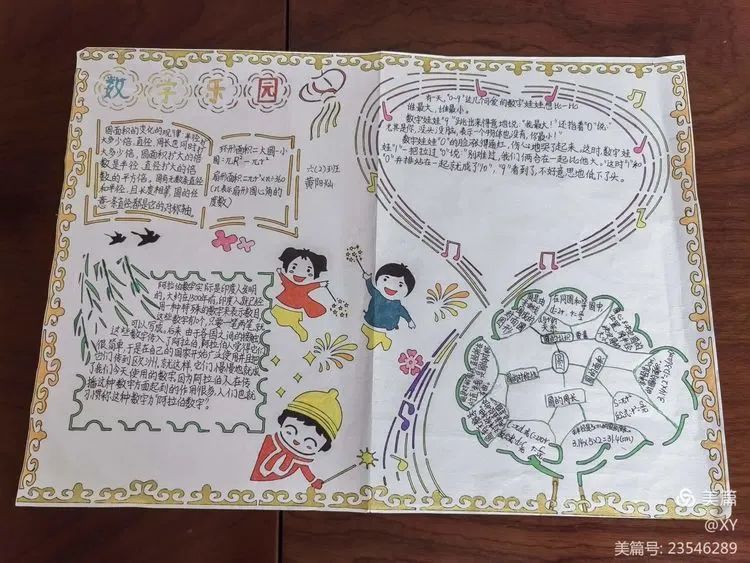 数字乐园
圆面积的变化的规律:半径扩
大多少倍,直径,周长也同时扩
大多少倍,圆面积扩大的倍
数是半径,直径扩大的倍
数的平方倍,圆有无数条直径
和半径,且长度相等,圆的任
意一条直径都是它的对称轴
环形面积=大圆-小
圆=πR²-πr²
扇形面积=πr²×n÷360
(n表示扇形圆心角的
度数)
六(2)班
黄阳灿
阿拉伯数字实际是印度人发明
的,大约在1500年前,印度人就已经
用一种特殊的数字来表示数目
这些数字有10个,只要一笔两笔,就
可以写成,后来,由于各国之间的接触
这些数字传入了阿拉伯,阿拉伯人觉得它们
很简单,于是在自己的国家开始广泛使用并且把
它们传到欧洲,就这样,它们慢慢地就成
了我们今天使用的数字,因为阿拉伯人在传
播这种数字方面起到的作用很多,人们也就
习惯称这种数字为“阿拉伯数字”。
有一天,“0-9”这几个可爱的数字娃娃想比一比
谁最大,谁最小。
数字娃娃“9”跳出来得意地说:“我最大!”还指着“0”说:
“尤其是你,没头,没脑,表示一个物体也没有,你最小!”
数字娃娃“0”的脸涨得通红,伤心地哭了起来。这时,数字娃
娃“1”一把拉过“0”说:“别难过,我们俩合在一起比他大。”这时“1”和
“0”并排站在一起就成了“10”,“9”看到了,不好意思地低下了头。
圆
圆的周长
3.14×5×2=31.4(cm)
美篇
@XY
美篇号: 23546289